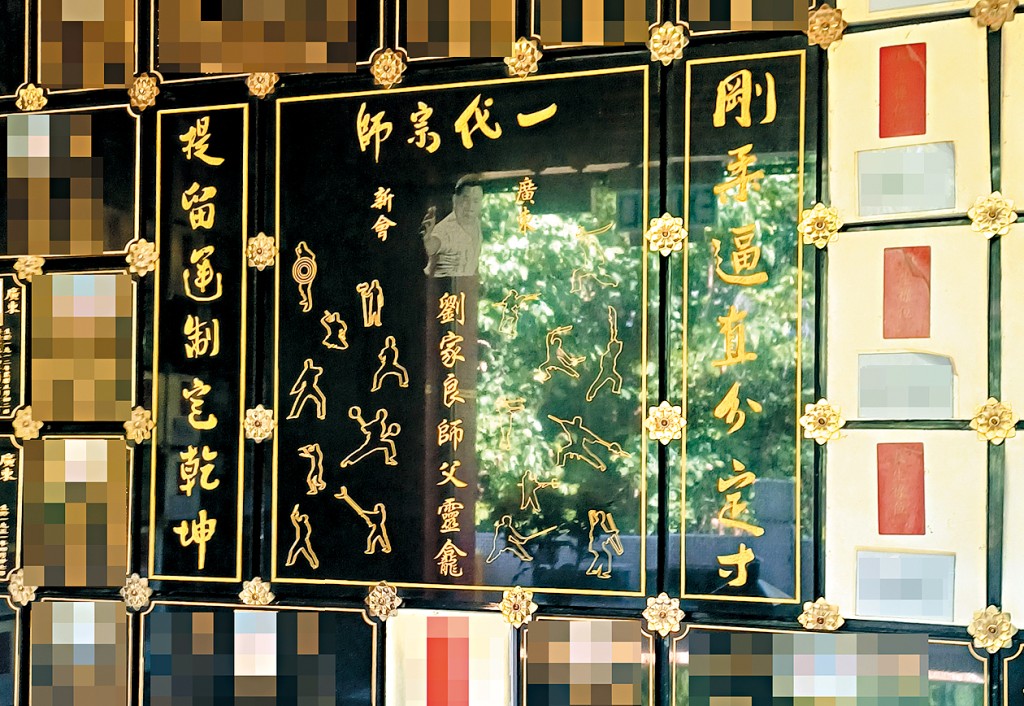 一代宗師
廣東
新會
劉家良師父靈龕
剛柔逼直分定寸
提留運制定乾坤
廣東
廣東